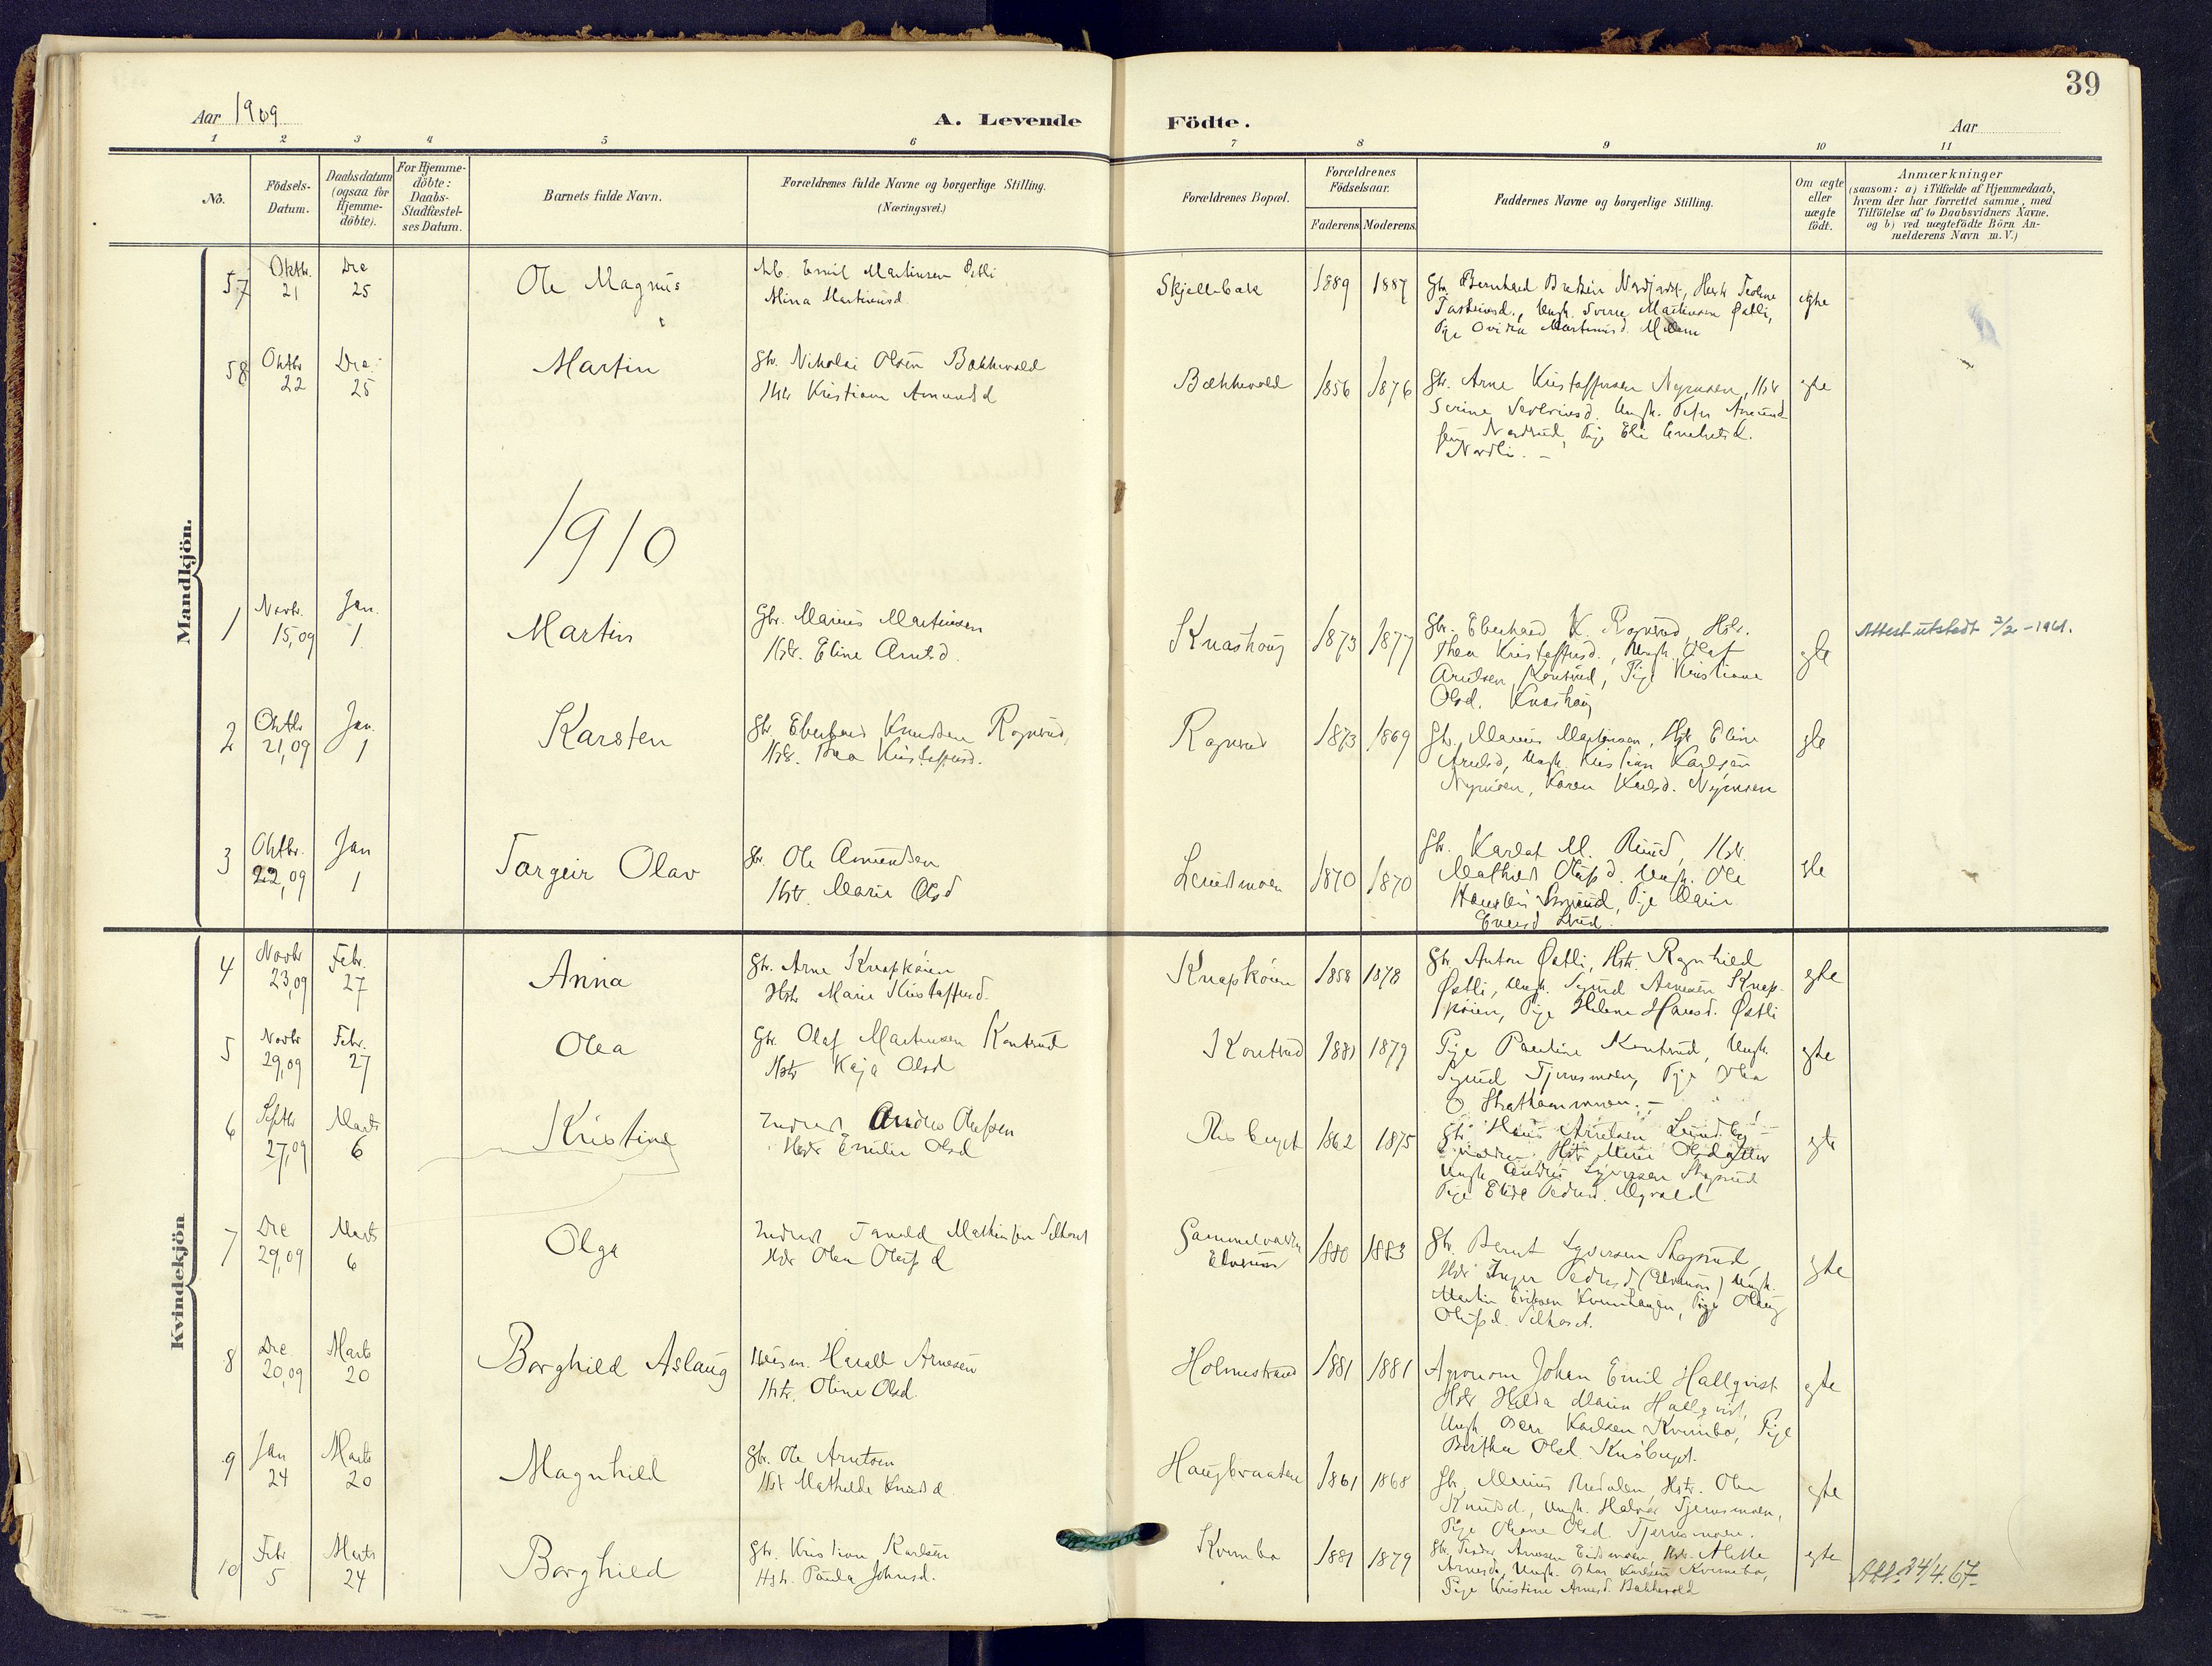 39
Aar 1909
A. Levende Födte.
Aar
1 2 3 4 5 6 7 8 9 10 11
No.
Födsels-Datum.
Daabsdatum (ogsaa for Hjemme-döbte).
For Hjemme-döbte: Daabs-Stadfæstel-ses Datum.
Barnets fulde Navn.
Forældrenes fulde Navne og borgerlige Stilling. (Næringsvei.)
Forældrenes Bopæl.
Forældrenes Födselsaar.
Faderens. Moderens.
Faddernes Navne og borgerlige Stilling.
Om ægte eller uægte födt.
Anmærkninger
(saasom: a) i Tilfælde af Hjemmedaab,
hvem der har forrettet samme, med
Tilföielse af to Daabsvidners Navne.
og b) ved uægtefödte Börn An-
melderens Navn m. V.)
Mandkjön.
57 Oktbr. 21 Dec 25 Ole Magnus
Emil Martinsen Østli
Mina Martinusd
Skjellebæk 1889 1887
Tarjeiusd., Ungk. Sverre Martinsen Østli,
Pige Martinusd. Moen
egte
58 Oktbr 22 Dec. 25 Martin
Gbr. Nikolai Olsen Bækkevold
Hstr Kristiane Amundsd
Bækkevold 1856 1876
Gbr. Arne Kristoffersen Nymoen, Hstr
Serine Severinsd. Ungk. Peter Amund-
sen Nordrud, Pige Eli
Nordli. –
egte
1910
1 Novbr. 15,09 Jan. 1 Martin
Gbr. Marius Martinsen
Hstr. Eline Arntsd.
Knashaug 1873 1877
Gbr. Eberhard K. Rognrud, Hstr.
Thea Kristoffersd., Ungk. Olaf
Arntsen Kontrud, Pige Kristiane
Olsd. Knashaug
egte
Attest utstedt 2/2 – 1961.
2 Oktbr 21,09 Jan. 1 Karsten
Gbr. Eberhard Knudsen Rognrud,
Hstr. Thea Kristoffersd.
Rognrud 1873 1869
Gbr. Marius Martinsen, Hstr Eline
Arntsd, Ungk. Kristian Karlsen
Nymoen, Karen Karlsd. Nymoen
egte
3 Oktbr. 22,09 Jan 1 Torgeir Olav
Gbr. Ole Amundsen
Hstr. Marie Olsd
Lundmoen 1870 1870
Gbr. Karl M. Ruud, Hstr.
Mathilde Olufsd. Ungk. Ole
Pige Marie
egte
Kvindekjön
4 Novbr 23,09 Febr. 27 Anna
Gbr. Arne Knapkøien
Hstr Marie Kristoffersd.
Knapkøien 1858 1878
Gbr. Anton Østli, Hstr. Ragnhild
Østli, Ungk. Sigurd Arnesen Knap-
køien, Pige Helene Hansd. Østli
egte
5 Novbr 29,09 Febr. 27 Olea
Gbr. Olaf Martinsen Kontrud
Hstr Kaja Olsd
Kontrud 1881 1879
Pige Pauline Kontrud, Ungk.
Sigurd Tjernsmoen, Pige Olea
O. Strathammeren. –
egte
6 Septbr 27,09 Marts 6 Kristine
Inderst Andreas Olufsen
Hstr Emilie Olsd
Risberget 1862 1875
Gbr. Hans Arntsen Lundby
Hstr Marie Olsdatter
Ungk. Andreas Syversen Skaprud
Pige Elise Pedersd.
egte
7 Dec 29,09 Marts 6 Olga
Inderst Tarald Mathisen Silkoset
Hstr Olea Olufsd
Elverum 1880 1883
Gbr. Bernt Syversen Skaprud
Hstr Inger Pedersd (Elverum) Ungk.
Martin Eriksen Kvernhaugen, Pige Olaug
Olufsd. Silkoset.
egte
8 Dec 20,09 Marts 20 Borghild Aslaug
Husm. Harald Arnesen
Hstr. Oline Olsd.
Holmestrand 1881 1881
Agronom Johan Emil Hallqvist
Hstr Hilda Maria Hallqvist,
Ungk. Oscar Karlsen Kvernbo, Pige
Bertha Olsd. Risberget.
egte
9 Jan 24 Marts 20 Magnhild
Gbr. Ole Arntsen
Hstr Mathilde Knudsd.
Haugbraaten 1861 1868
Gbr. Marius Hstr. Olea
Knudsd., Ungk. Halvor Tjernsmoen,
Pige Oleane Olsd. Tjernsmoen.
egte
10 Febr. 5 Marts 24 Borghild
Gbr. Kristian Karlsen
Hstr. Paula Johnsd.
Kvernbo 1881 1879
Gbr. Peder Arnesen Hstr. Alette
Arnesd., Ungk. Oskar Karlsen Kvernbo,
Pige Kristine Arnesd. Bækkevold
egte
Att. 24/4.67.